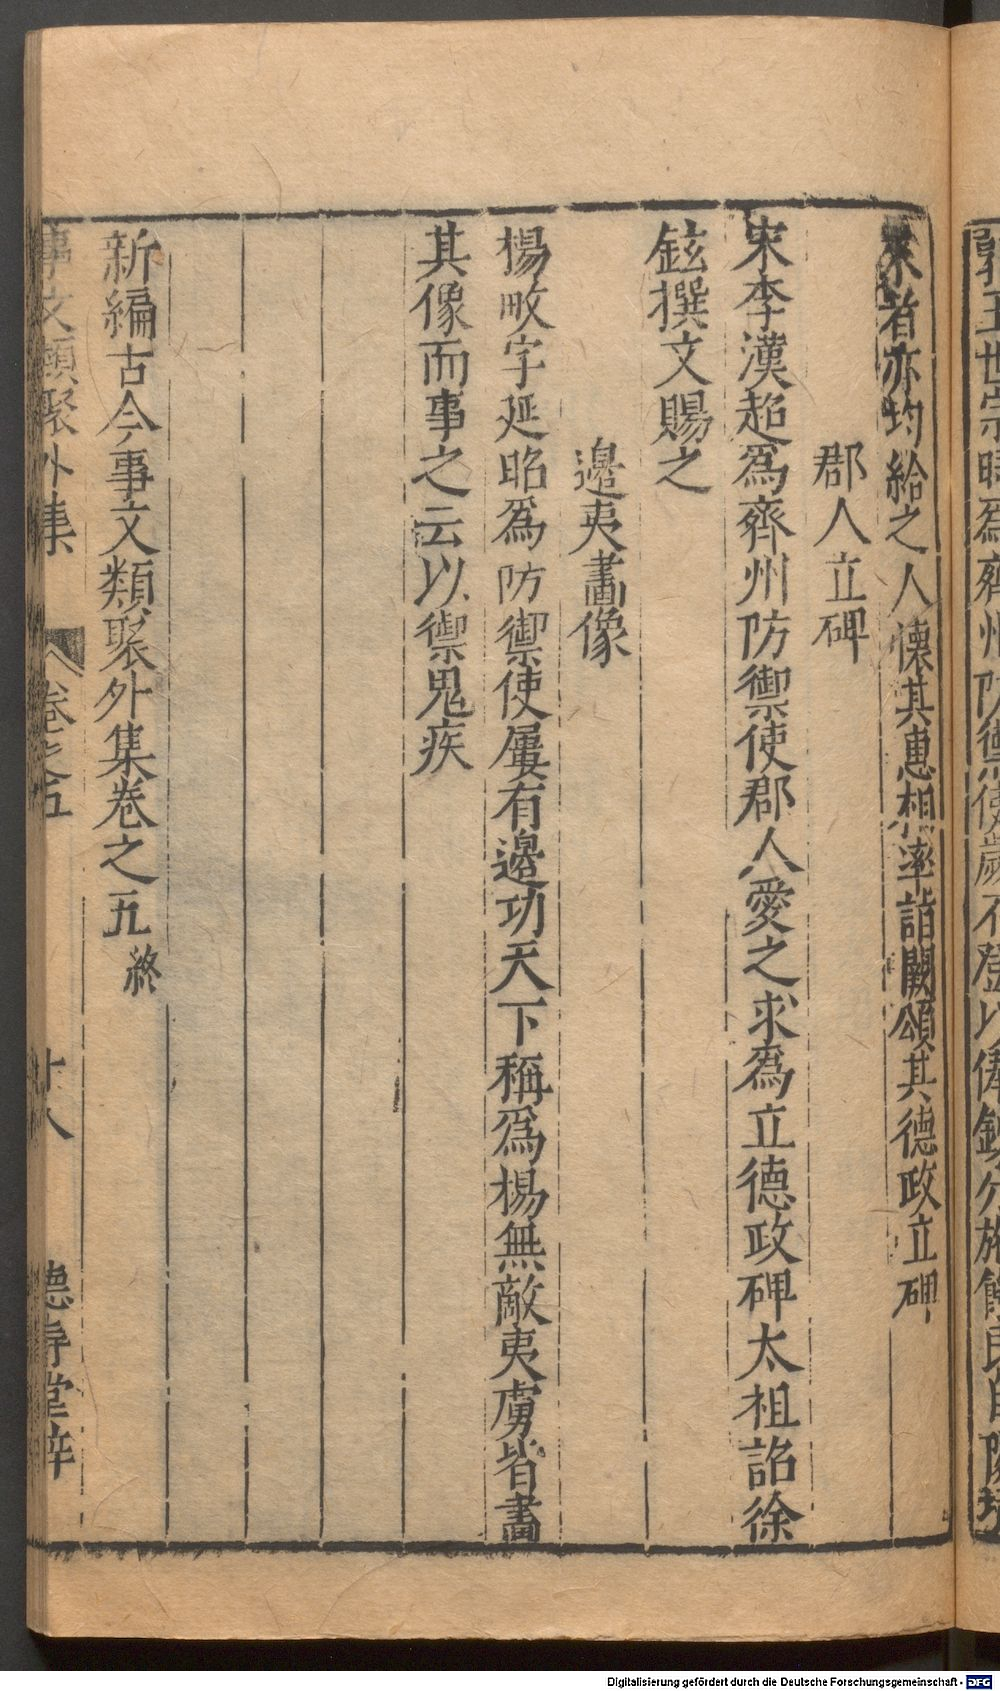 郭王世宗時爲齊州防禦使歲不登以俸錢分施飢民自隣境
來者亦均給之人懷其惠相率詣闕頌其德政立碑
郡人立碑
宋李漢超爲齊州防禦使郡人愛之求爲立德政碑太祖詔徐
鉉撰文賜之
邊夷畫像
楊畋字延昭爲防禦使屢有邊功天下稱爲楊無敵夷虜皆畫
其像而事之云以禦鬼疾
新編古今事文類聚外集卷之五 終
事文類聚外集 卷之五 十八 德壽堂梓
Digitalisierung gefördert durch die Deutsche Forschungsgemeinschaft - DFG